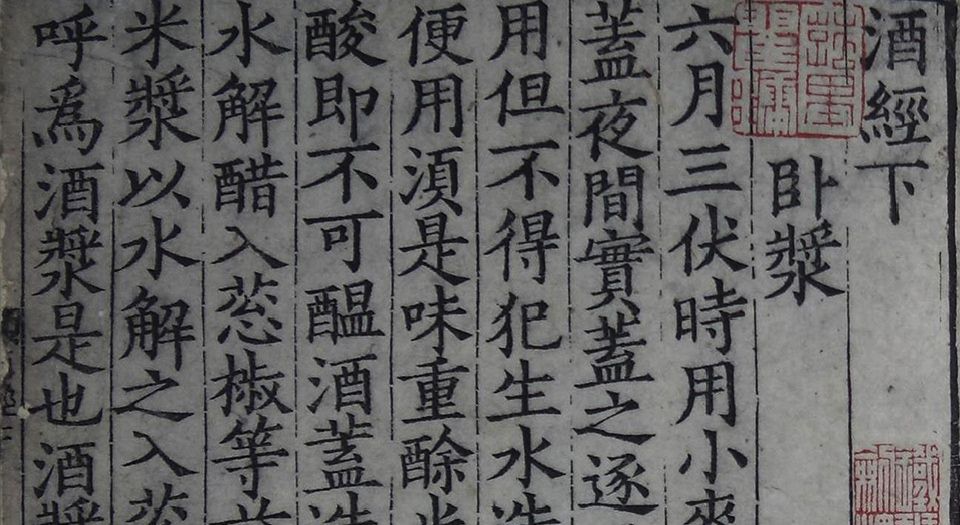 酒經下
卧漿
六月三伏時用小麥
蓋夜間實蓋之逐
用但不得犯生水造
便用湏是味重酴米
酸即不可醞酒蓋造
水解醋入葱椒等
米漿以水解之入葱
呼爲酒漿是也酒漿